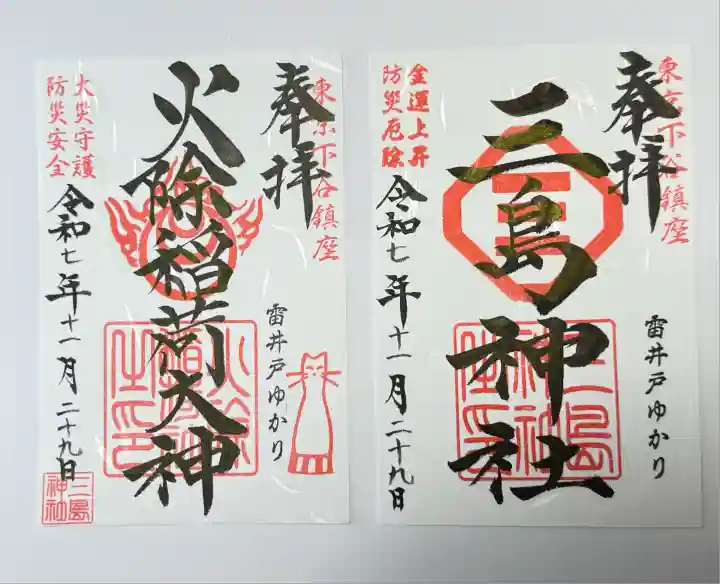 東京下谷鎮座
奉拝
三島神社
雷井戸ゆかり
金運上昇
防災厄除
令和七年十一月二十九日
三島
神社
東京下谷鎮座
奉拝
火除稲荷大神
雷井戸ゆかり
火災守護
防災安全
令和七年十一月二十九日
三島
神社